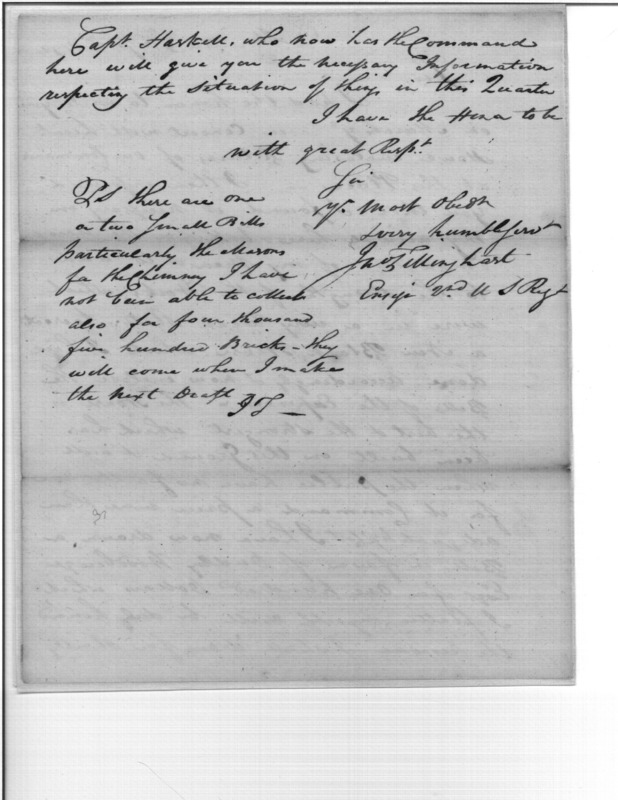 Capt. Haskell, who now has the Command
here will give you the necessary Information
respecting the Situation of things in this Quarter
I have the Honor to be
with great Respt.
Sir
yr. most Obedt
& very humble Servt
Jno Tillinghast
Ensign 2nd U S Regt
PS there are one
or two Small Bills
particularly the Masons
for the Chimney I have
not been able to collect
also for four thousand
five hundred Bricks - they
will come when I make
the next Draft
JT